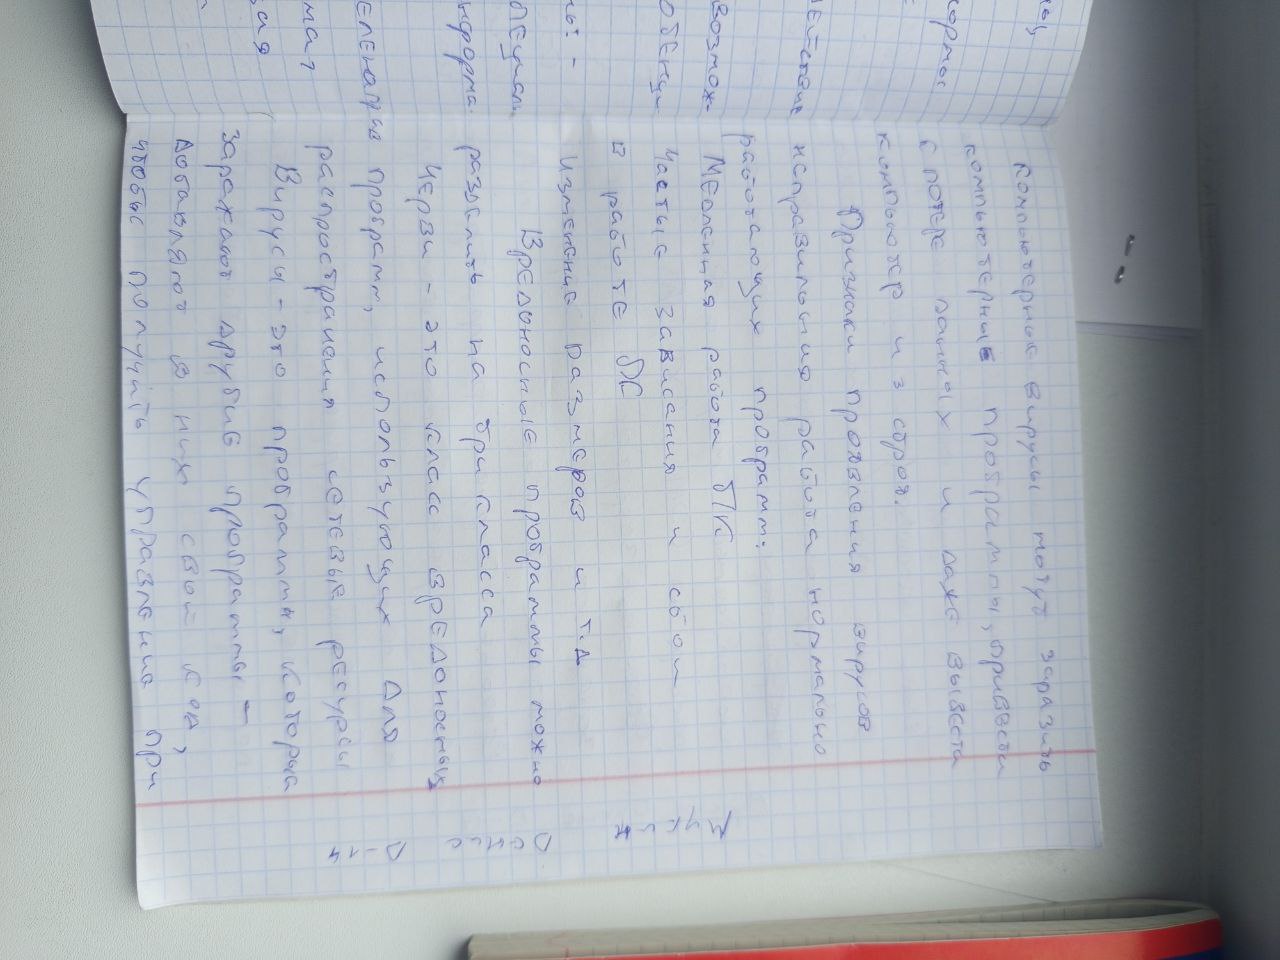 Компьютерные вирусы могут заразить
компьютерные программы, привести
к потере данных и даже вывести
компьютер из строя.
Признаки проявления вирусов
неправильная работа нормально
работающих программ:
Медленная работа ПК
Частые зависания и сбои
в работе ПК
Изменение размеров и т.д
Вредоносные программы можно
разделить на три класса
Черви - это класс вредоносных
программ, использующих для
распространения сетевые ресурсы
Вирусы - это программы, которые
заражают другие программы -
добавляют в них свой код,
чтобы получить управление при
Денис
D-14